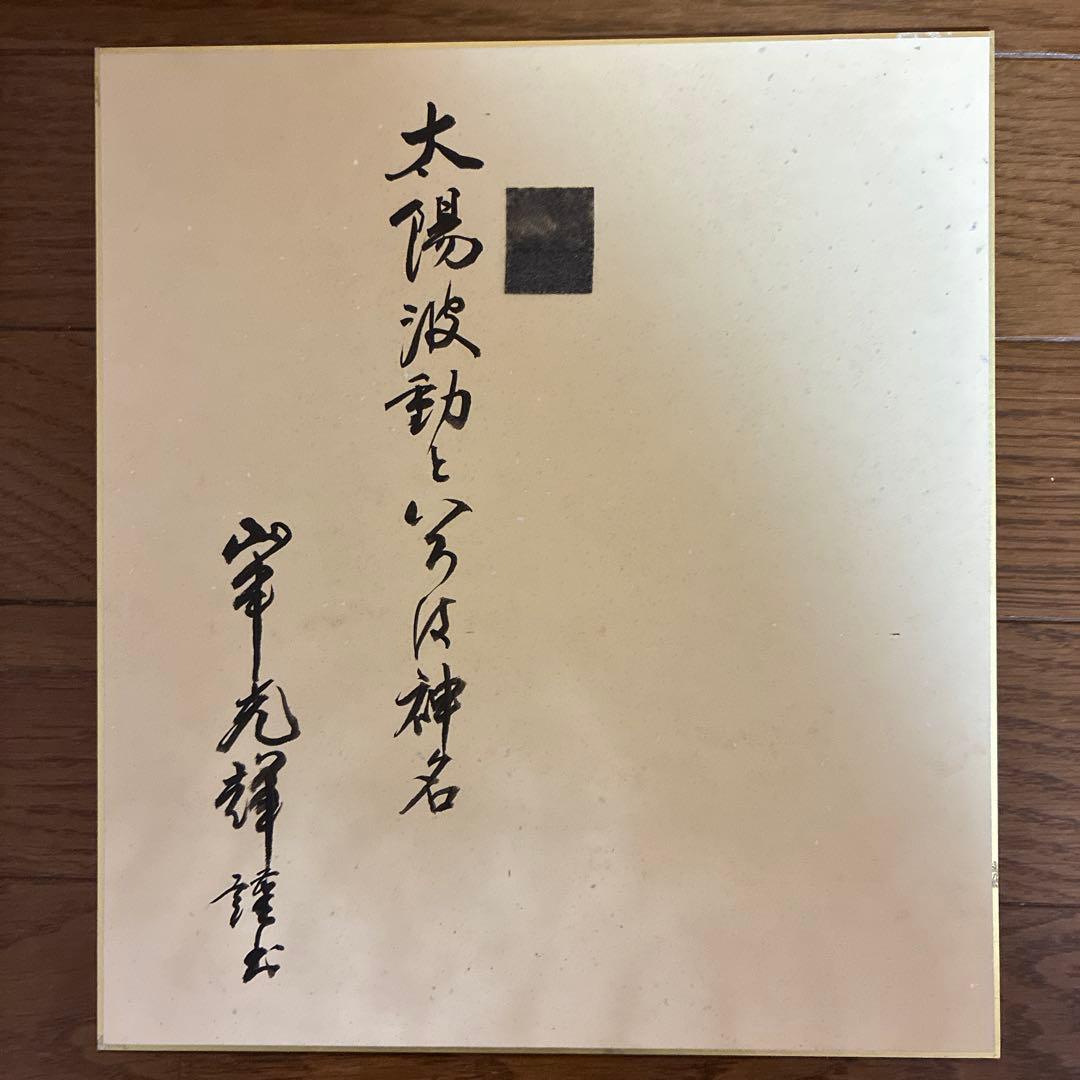 太陽波動といろは神名
峯光輝謹書